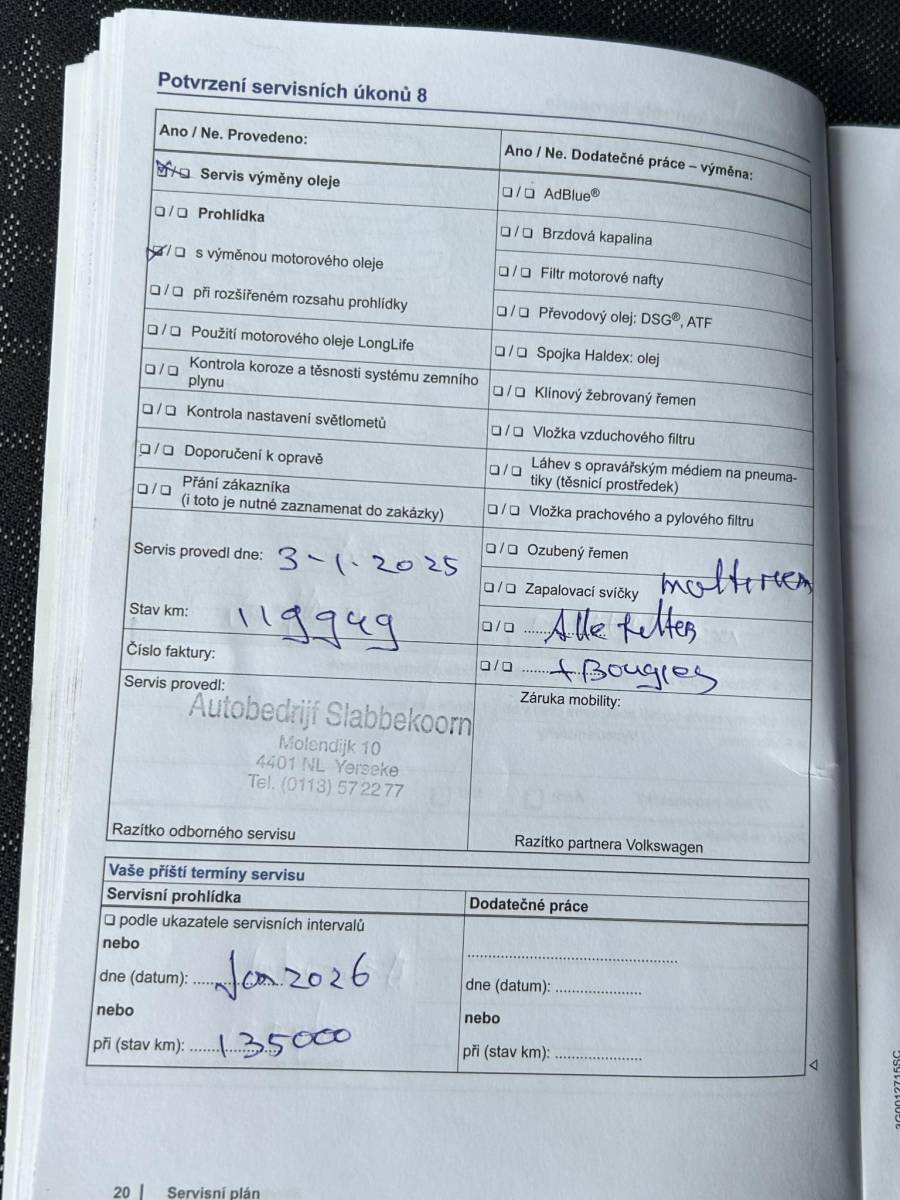 Potvrzení servisních úkonů 8
Ano / Ne. Provedeno:
☒/☐ Servis výměny oleje
☐/☐ Prohlídka
☒/☐ s výměnou motorového oleje
☐/☐ při rozšířeném rozsahu prohlídky
☐/☐ Použití motorového oleje LongLife
☐/☐ Kontrola koroze a těsnosti systému zemního
plynu
☐/☐ Kontrola nastavení světlometů
☐/☐ Doporučení k opravě
☐/☐ Přání zákazníka
(i toto je nutné zaznamenat do zakázky)
Servis provedl dne: 3-1-2025
Stav km: 119949
Číslo faktury:
Servis provedl:
Autobedrijf Slabbekoorn
Molendijk 10
4401 NL Yerseke
Tel. (0113) 572277
Razítko odborného servisu
Ano / Ne. Dodatečné práce – výměna:
☐/☐ AdBlue®
☐/☐ Brzdová kapalina
☐/☐ Filtr motorové nafty
☐/☐ Převodový olej: DSG®, ATF
☐/☐ Spojka Haldex: olej
☐/☐ Klínový žebrovaný řemen
☐/☐ Vložka vzduchového filtru
☐/☐ Láhev s opravářským médiem na pneuma-
tiky (těsnicí prostředek)
☐/☐ Vložka prachového a pylového filtru
☐/☐ Ozubený řemen
☐/☐ Zapalovací svíčky
☐/☐ Alle filters
☐/☐ + Bougies
Záruka mobility:
Razítko partnera Volkswagen
Vaše příští termíny servisu
Servisní prohlídka
☐ podle ukazatele servisních intervalů
nebo
dne (datum): Jan 2026
nebo
při (stav km): 135000
Dodatečné práce
dne (datum):
nebo
při (stav km):
20 | Servisní plán
3G0012715SC